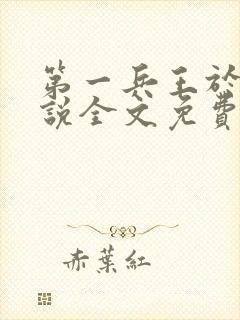 第一兵王於
說全文免費
赤葉紅